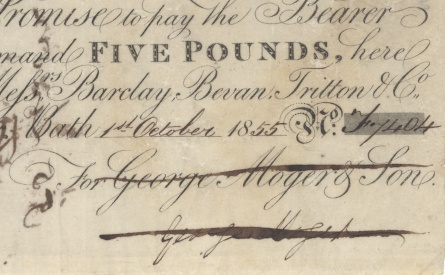 Promise to pay the Bearer
mand FIVE POUNDS, here
Messrs Barclay, Bevan, Tritton & Co.
Bath 1st October 1855 No.
For George Moger & Son.
George Moger